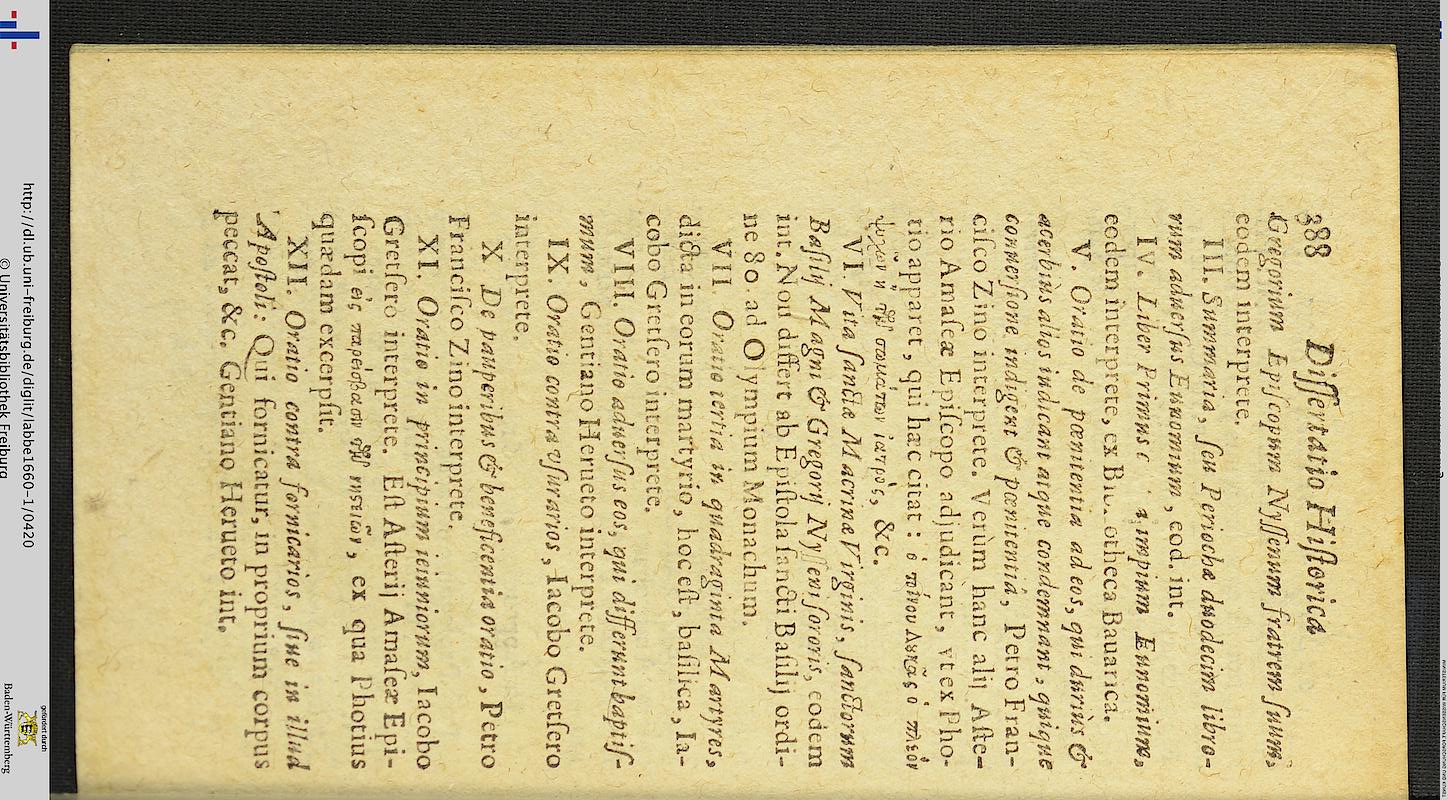 388 Diſſertatio Hiſtorica
Gregorium Epiſcopum Nyſſenum fratrem ſuum,
eodem interprete.
III. Summaria, ſeu Periochæ duodecim libro-
rum aduerſus Eunomium, eod. int.
IV. Liber Primus impium Eunomium,
eodem interprete, ex otheca Bauarica.
V. Oratio de pœnitentia ad eos, qui duriùs &
acerbiùs alios iudicant atque condemnant, quique
conuerſione indigent & pœnitentiâ, Petro Fran-
ciſco Zino interprete. Verùm hanc alij Aſte-
rio Amaſeæ Epiſcopo adjudicant, vt ex Pho-
tio apparet, qui hæc citat: ὁ πάνυ Λυκᾶς ὁ πλέον
ψυχῶν ἢ τῶν σωμάτων ἰατρὸς, &c.
VI. Vita ſanctæ Macrinæ Virginis, ſanctorum
Baſilij Magni & Gregorij Nyſſeni ſororis, eodem
int. Non differt ab Epiſtola ſancti Baſilij ordi-
ne 80. ad Olympium Monachum.
VII. Oratio tertia in quadraginta Martyres,
dicta in eorum martyrio, hoc eſt, baſilica, Ia-
cobo Gretſero interprete.
VIII. Oratio aduerſus eos, qui differunt baptiſ-
mum, Gentiano Herueto interprete.
IX. Oratio contra vſurarios, Iacobo Gretſero
interprete.
X. De pauperibus & beneficentia oratio, Petro
Franciſco Zino interprete.
XI. Oratio in principium ieiuniorum, Iacobo
Gretſero interprete. Eſt Aſterij Amaſeæ Epi-
ſcopi εἰς παρείσβασιν τῶν νηστειῶν, ex qua Photius
quædam excerpſit.
XII. Oratio contra fornicarios, ſiue in illud
Apoſtoli: Qui fornicatur, in proprium corpus
peccat, &c. Gentiano Herueto int.
http://dl.ub.uni-freiburg.de/diglit/labbe1660-1/0420
© Universitätsbibliothek Freiburg
gefördert durch
Baden-Württemberg